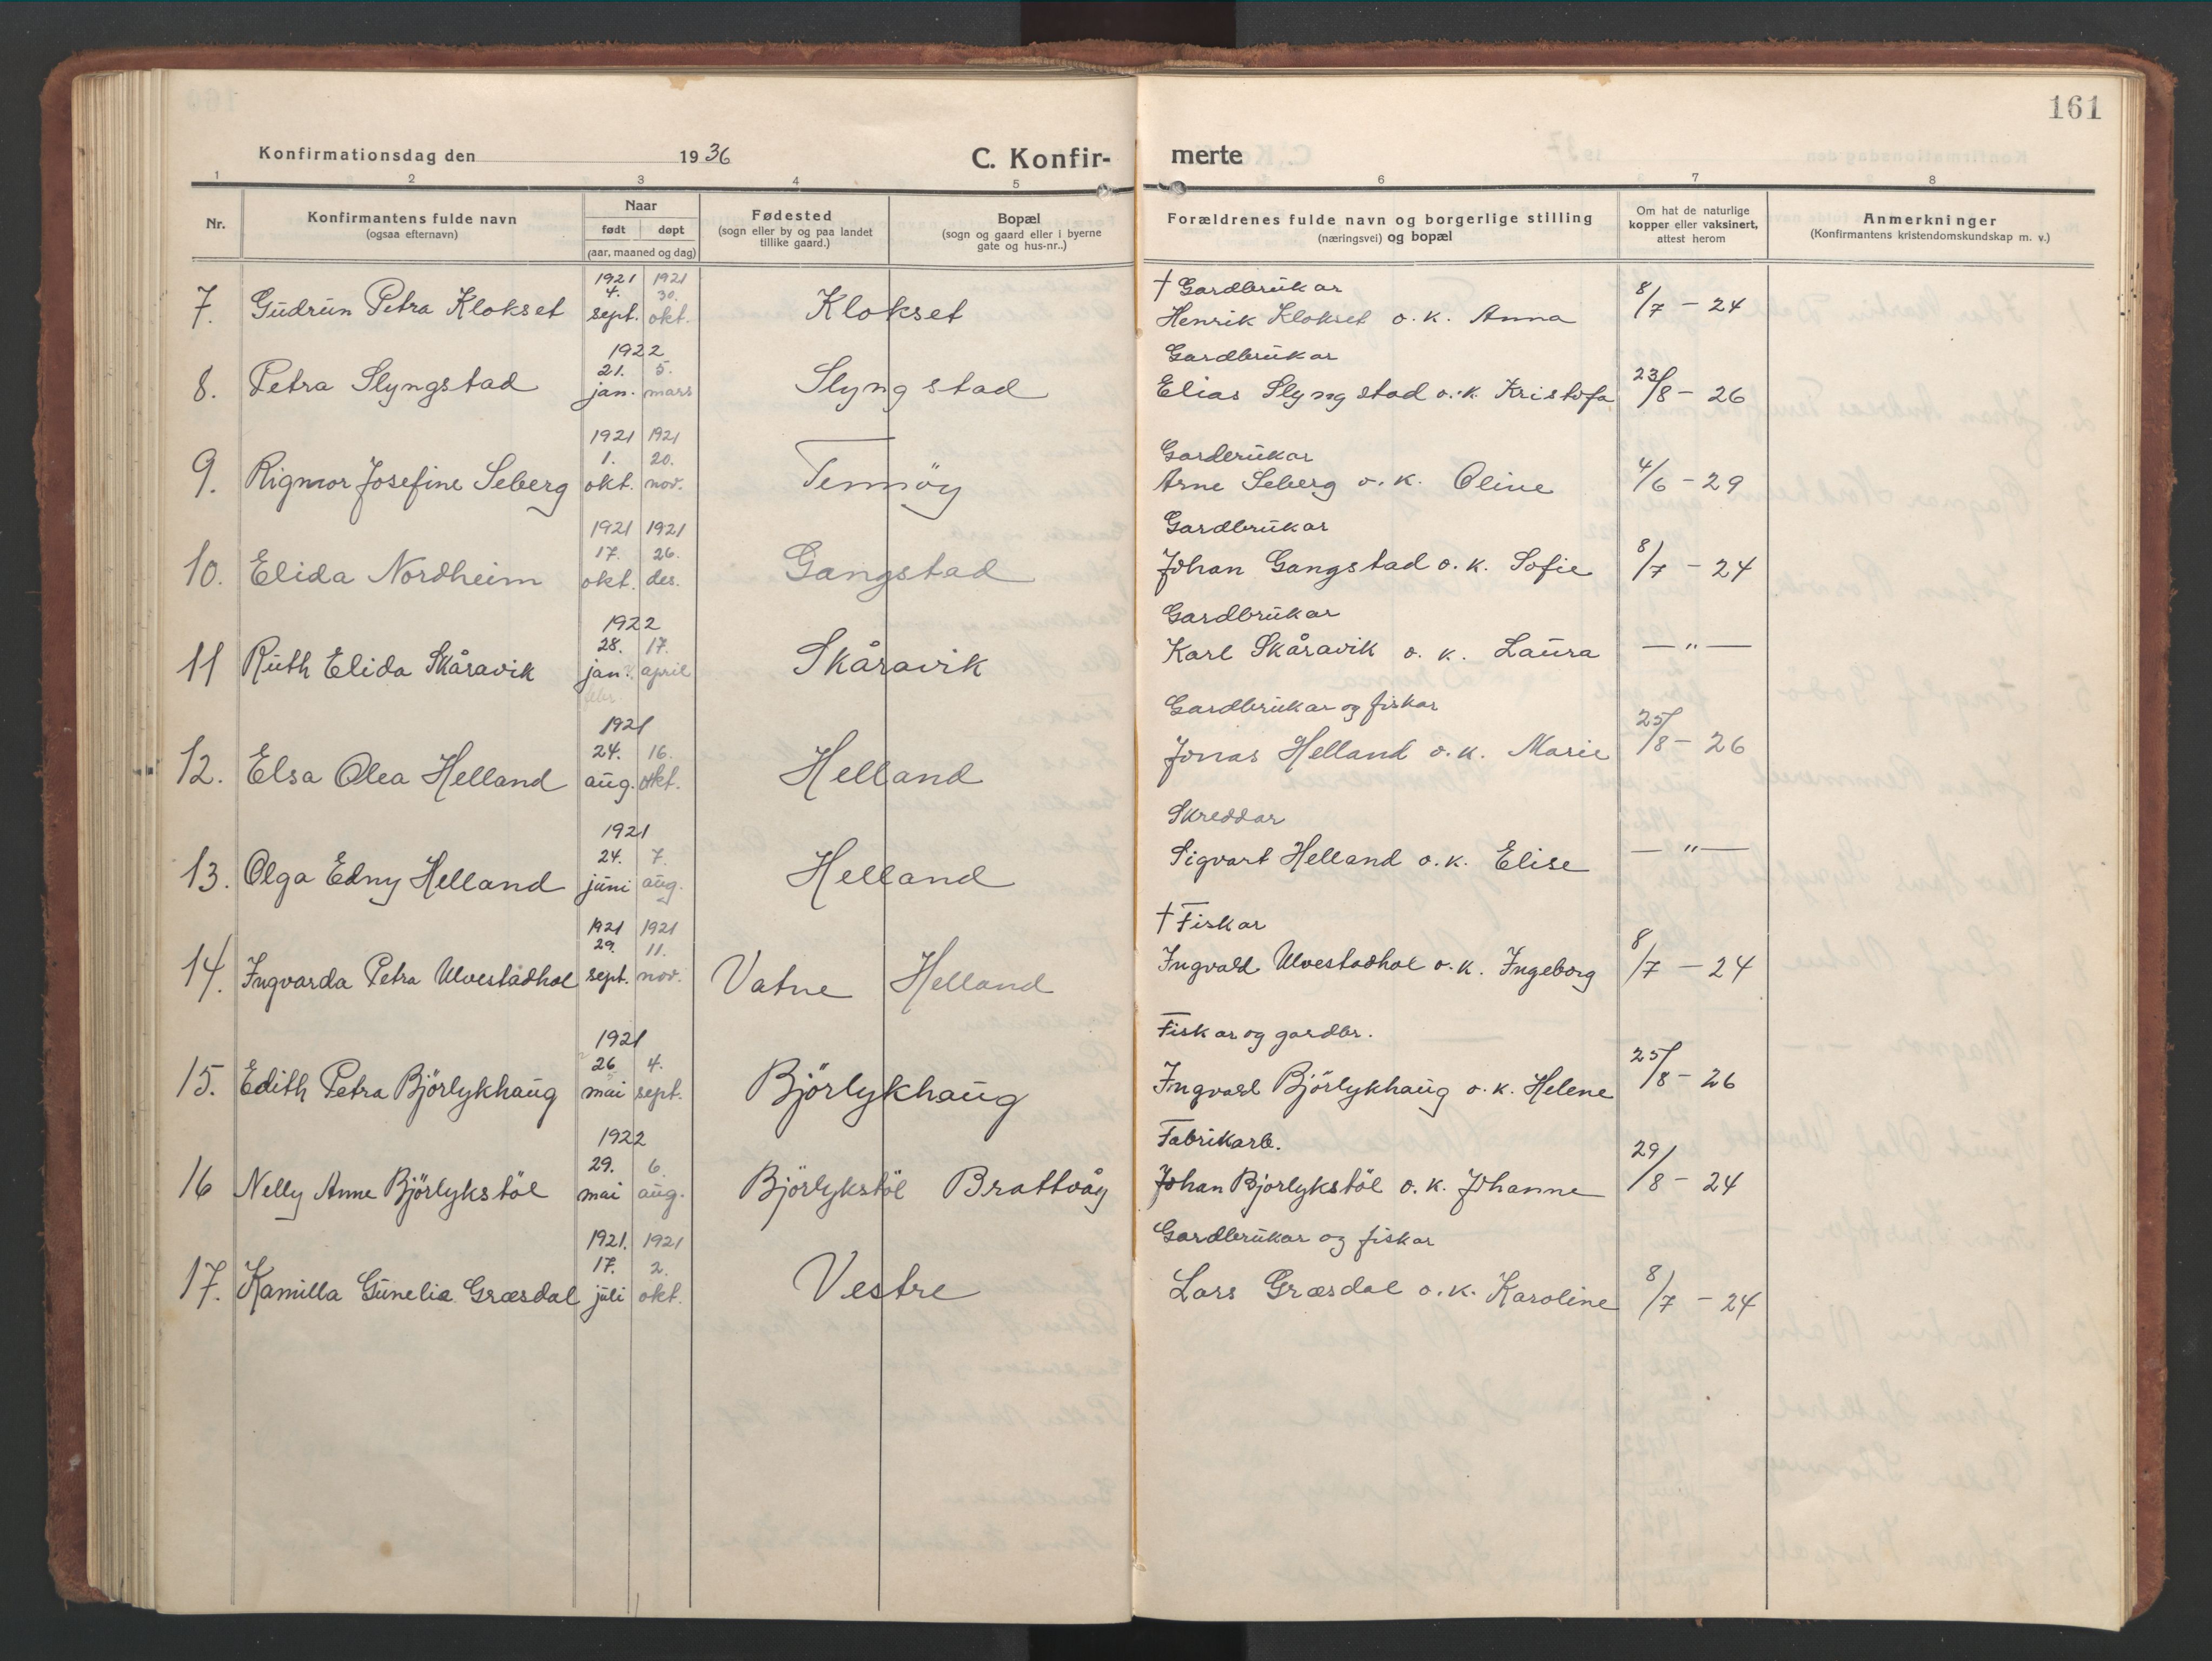 161
Konfirmationsdag den 1936 C. Konfir- merte
1 2 3 4 5 6 7 8
Nr.
Konfirmantens fulde navn
(ogsaa efternavn)
Naar
født døpt
(aar, maaned og dag)
Fødested
(sogn eller by og paa landet
tillike gaard.)
Bopæl
(sogn og gaard eller i byerne
gate og hus-nr..)
Forældrenes fulde navn og borgerlige stilling
(næringsvei) og bopæl
Om hat de naturlige
kopper eller vaksinert,
attest herom
Anmerkninger
(Konfirmantens kristendomskundskap m. v.)
1921 1921 † Gardbrukar
4. 30.
7. Gudrun Petra Klokset sept. okt. Klokset Henrik Klokset o. k. Anna 8/7 - 24
1922 Gardbrukar
21. 5.
8. Petra Slyngstad jan. mars Slyngstad Elias Slyngstad o. k. Kristofa 23/8 - 26
1921 1921 Garderukar
1. 20.
9. Rigmor Josefine Seberg okt. nov. Tennöy Arne Seberg o. k. Oline 4/6 - 29
1921 1921 Gardbrukar
17. 26.
10. Elida Nordheim okt. des. Gangstad Johan Gangstad o. k. Sofie 8/7 - 24
1922 Gardbrukar
28. 17.
11 Ruth Elida Skåravik jan. april Skåravik Karl Skåravik o. k. Laura — " —
febr.
1921 Gardbrukar og fiskar
24. 16.
12. Elsa Olea Helland aug. okt. Helland Jonas Helland o. k. Marie 25/8 - 26
1921 Skreddar
24. 7.
13. Olga Edny Helland juni aug. Helland Sigvart Helland o. k. Elise — " —
1921 1921 † Fiskar
29. 11.
14. Ingvarda Petra Ulvestadhol sept. nov. Vatne Helland Ingvald Ulvestadhol o. k. Ingeborg 8/7 - 24
1921 Fiskar og gardbr.
26 4.
15. Edith Petra Björlykhaug mai sept. Björlykhaug Ingvald Björlykhaug o. k. Helene 25/8 - 26
1922 Fabrikarb.
29. 6.
16 Nelly Anne Björlykstöl mai aug. Björlykstöl Brattvåg Johan Bjorlykstöl o. k. Johanne 29/8 - 24
1921. 1921 Gardbrukar og fiskar
17. 2.
17. Kamilla Gunelia Græsdal juli okt. Vestre Lars Græsdal o. k. Karoline 8/7 - 24